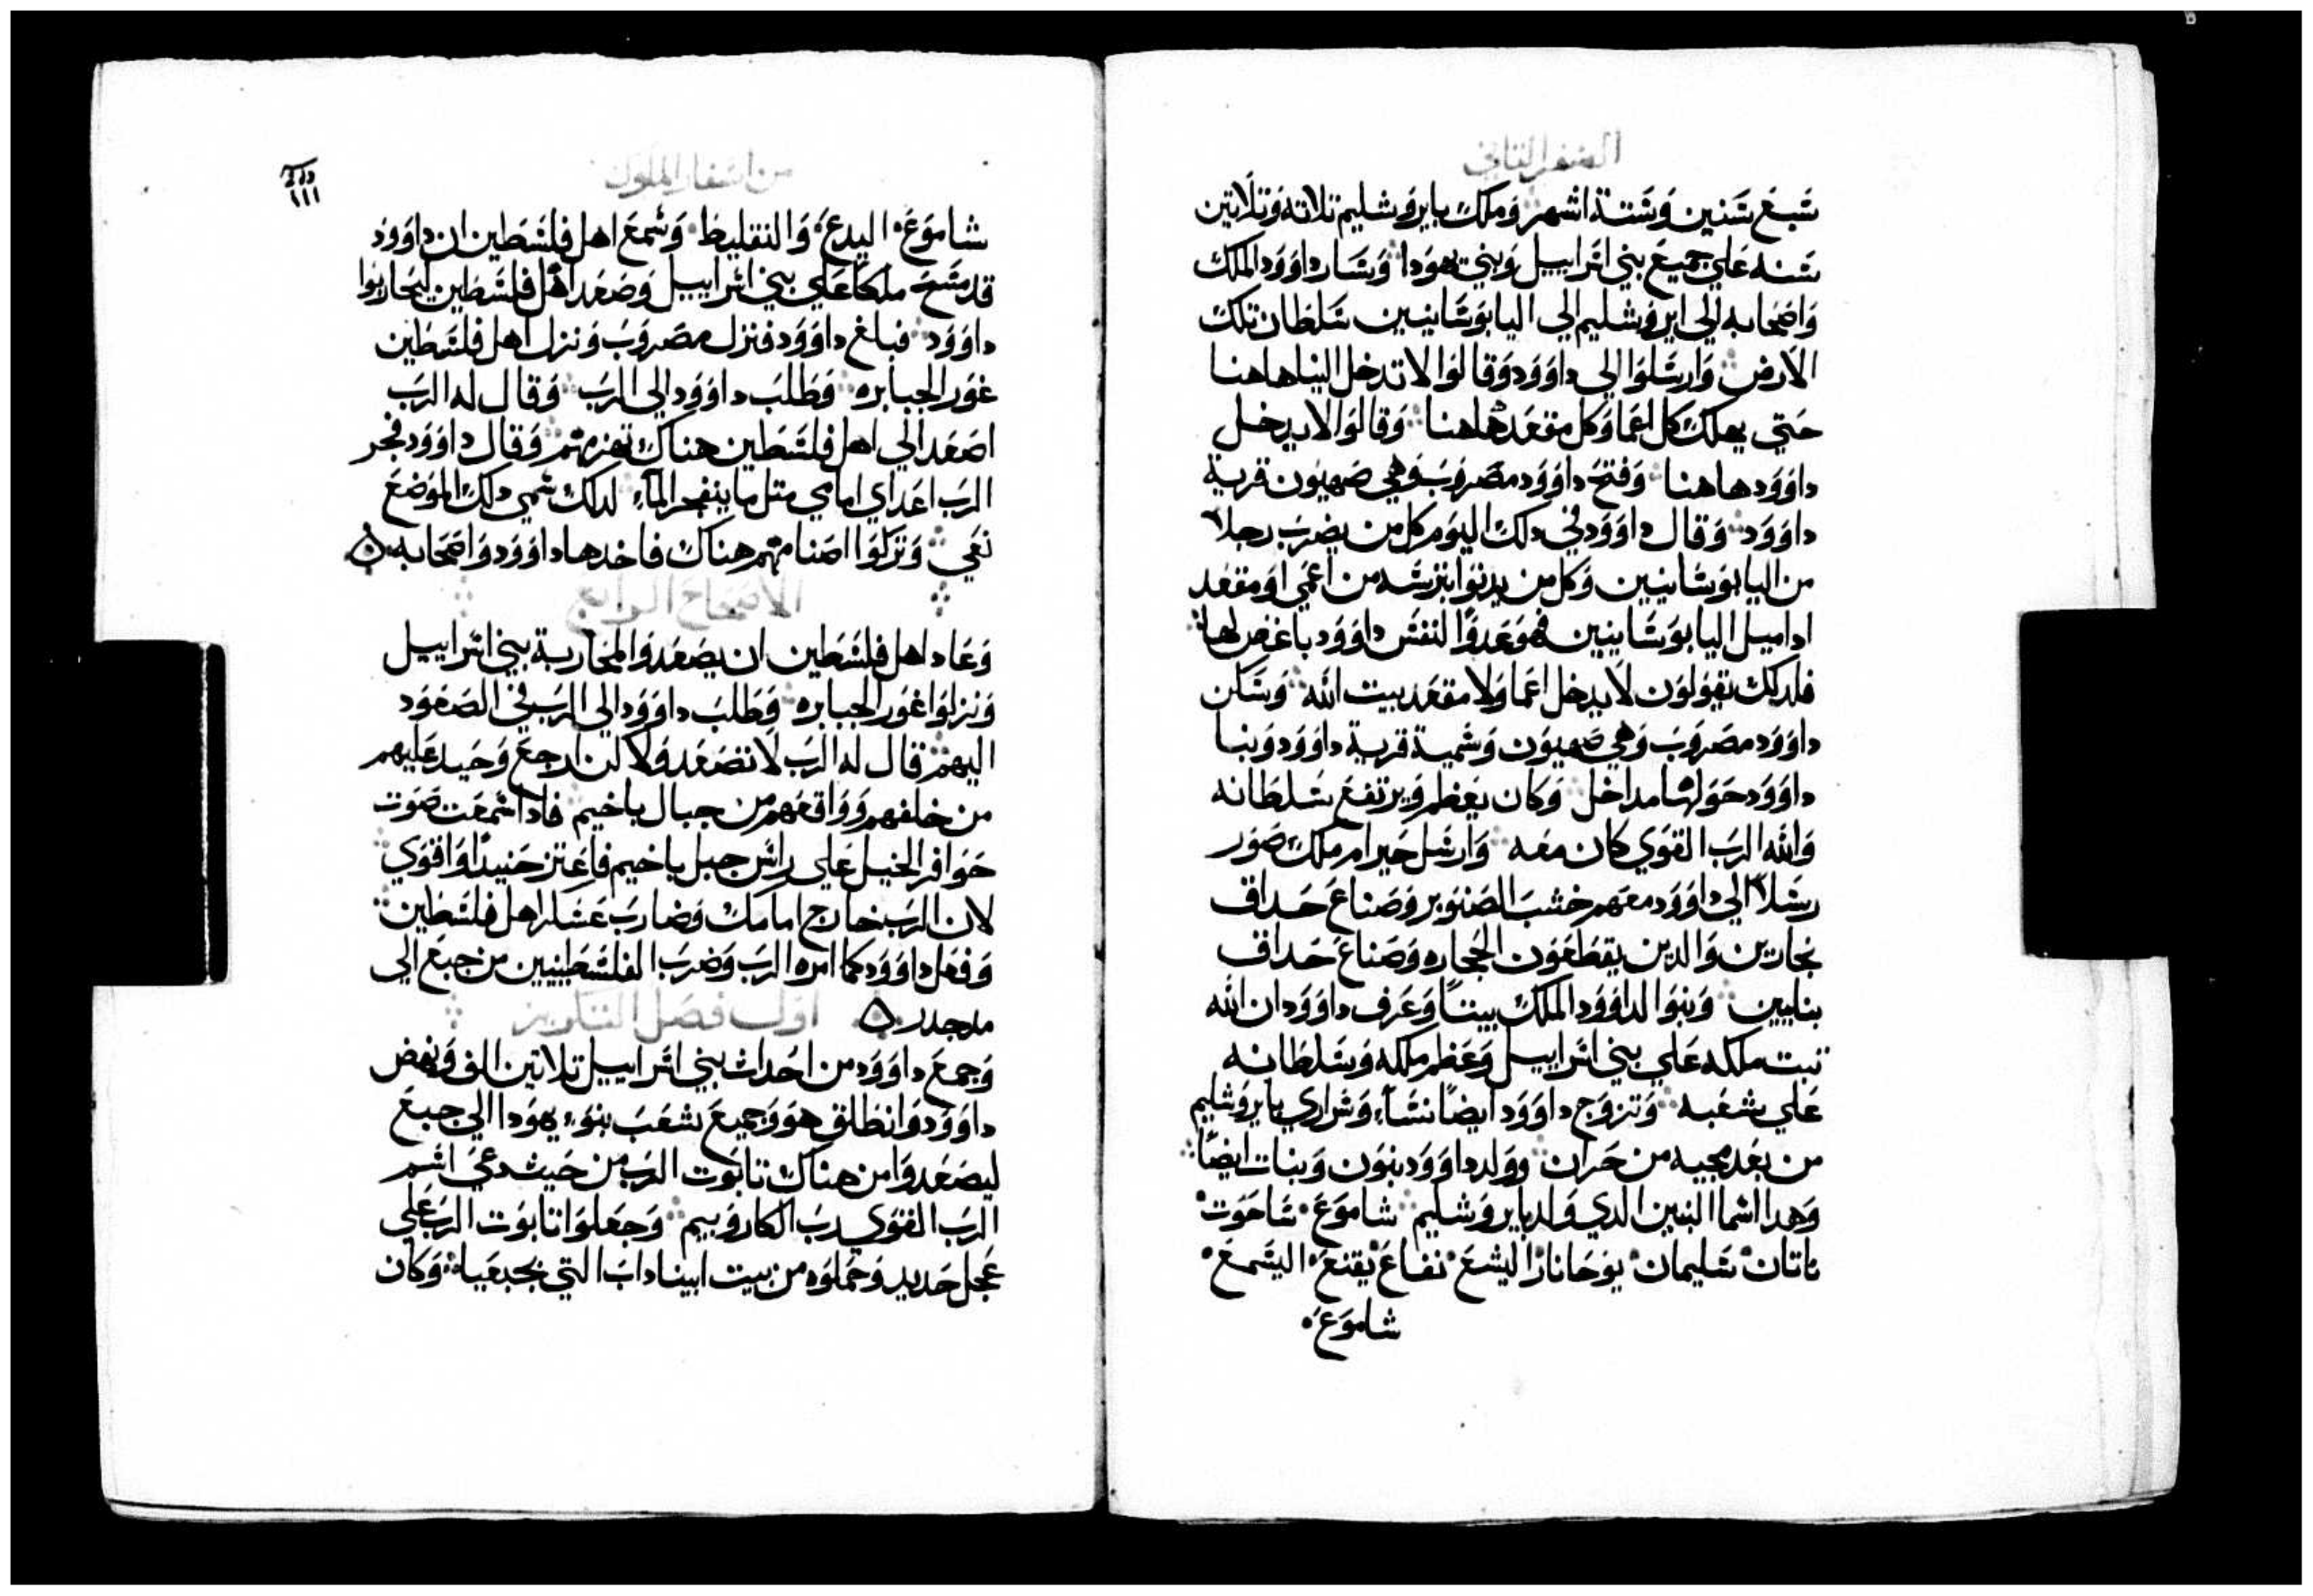 السفر التاني
سبع سنين وستة اشهر وملك بايروشليم تلاته وتلاتين
سنه علي جميع بني اسراييل وبني يهودا وسار داوود الملك
واصحابه الي ايروشليم الي اليابوسانيين سلطان تلك
الارض وارسلوا الي داوود وقالوا لا تدخل الينا هاهنا
حتي يهلك كل اعما وكل مقعد هاهنا وقالوا لا يدخل
داوود هاهنا وفتح داوود مصروب وهي صهيون قرية
داوود وقال داوود في دلك اليوم كل من يضرب رجلا
من اليابوسانيين وكل من يدنوا بترسه من اعمي او مقعد
اداميل اليابوسانيين فهو عدوا لنفس داوود باغض لها
فلدلك تقولون لا يدخل اعما ولا مقعد بيت الله وسكن
داوود مصروب وهي صهيون وسمية قرية داوود وبنا
داوود حولها مداخل وكان يعظم ويرتفع سلطانه
والله الرب القوي كان معه وارسل حيرام ملك صور
رسلا الي داوود معهم خشب الصنوبر وصناع حداق
نجارين والدين يقطعون الحجاره وصناع حداق
بنايين وبنوا لداوود الملك بيتا وعرف داوود ان الله
تبت ملكه علي بني اسراييل وعظم ملكه وسلطانه
علي شعبه وتزوج داوود ايضا نساء وسراري بايروشليم
من بعد مجيه من حران وولد داوود بنون وبنات ايضا
وهدا اسما البنين الدي ولد بايروشليم شاموع ساحوت
ناتان سليمان يوحانار اليشع نفاع يقنع اليسمع
شاموع
من اسفار الملوك
١١١
شاموع اليدع والنقليط وسمع اهل فلسطين ان داوود
قد مسح ملكا علي بني اسراييل وصعد اهل فلسطين ليحاربوا
داوود فبلغ داوود فنزل مصروب ونزل اهل فلسطين
غور الجبابره وطلب داوود الي الرب وقال له الرب
اصعد الي اهل فلسطين هناك تهزمهم وقال داوود فجر
الرب اعداي امامي متل ما ينفجر الماء لدلك سمي دلك الموضع
نعي وتركوا اصنامهم هناك فاخدها داوود واصحابه
الاصحاح الرابع
وعاد اهل فلسطين ان يصعدوا لمحاربة بني اسراييل
ونزلوا غور الجبابره وطلب داوود الي الرب في الصعود
اليهم قال له الرب لا تصعد ولا كن ارجع وحيد عليهم
من خلفهم وواقعهم من جبال باخيم فادا سمعت صوت
حوافر الخيل علي راس جبل باخيم فاعتز حنيدا واقوي
لان الرب خارج امامك وضارب عسكر اهل فلسطين
وفعل داوود كما امره الرب وضرب الفلسطينيين من جبع الي
مدجدر اول فصل التكريز
وجمع داوود من احداث بني اسراييل تلاتين الف ونهض
داوود وانطلق هو وجميع شعب بنوء يهودا الي جبع
ليصعدوا من هناك تابوت الرب من حيث دعي اسم
الرب القوي رب الكاروبيم وجعلوا تابوت الرب علي
عجل حديد وحملوه من بيت ابيناداب التي بجبعياه وكان